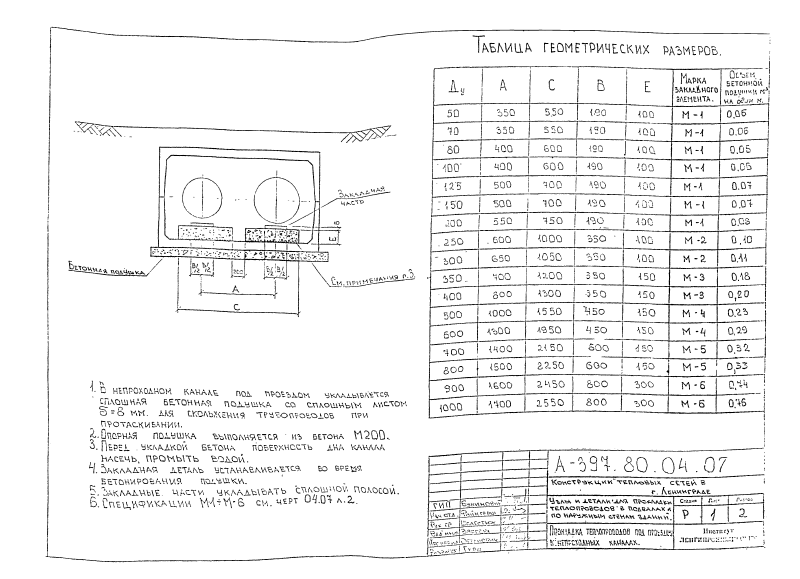 ТАБЛИЦА ГЕОМЕТРИЧЕСКИХ РАЗМЕРОВ.
Ду А С В Е МАРКА ЗАКЛАДНОГО ЭЛЕМЕНТА. ОБЪЕМ БЕТОННОЙ ПОДУШКИ М³ НА ОДИН М.
50 350 550 190 100 М-1 0,06
70 350 550 190 100 М-1 0,06
80 400 600 190 100 М-1 0,06
100 400 600 190 100 М-1 0,05
125 500 700 190 100 М-1 0,07
150 500 700 190 100 М-1 0,07
200 550 750 190 100 М-1 0,08
250 600 1000 350 100 М-2 0,10
300 650 1050 350 100 М-2 0,11
350 700 1200 350 150 М-3 0,18
400 800 1300 350 150 М-3 0,20
500 1000 1550 450 150 М-4 0,23
600 1300 1850 450 150 М-4 0,29
700 1400 2150 600 150 М-5 0,32
800 1500 2250 600 150 М-5 0,33
900 1600 2450 800 300 М-6 0,74
1000 1700 2550 800 300 М-6 0,76
ЗАКЛАДНАЯ
ЧАСТЬ
Е
Б
БЕТОННАЯ ПОДУШКА
В/2 В/2 200 В/2 В/2
СМ. ПРИМЕЧАНИЯ П.3
А
С
1. В НЕПРОХОДНОМ КАНАЛЕ ПОД ПРОЕЗДОМ УКЛАДЫВАЕТСЯ
СПЛОШНАЯ БЕТОННАЯ ПОДУШКА СО СПЛОШНЫМ ЛИСТОМ
δ=8 ММ. ДЛЯ СКОЛЬЖЕНИЯ ТРУБОПРОВОДОВ ПРИ
ПРОТАСКИВАНИИ.
2. ОПОРНАЯ ПОДУШКА ВЫПОЛНЯЕТСЯ ИЗ БЕТОНА М200.
3. ПЕРЕД УКЛАДКОЙ БЕТОНА ПОВЕРХНОСТЬ ДНА КАНАЛА
НАСЕЧЬ, ПРОМЫТЬ ВОДОЙ.
4. ЗАКЛАДНАЯ ДЕТАЛЬ УСТАНАВЛИВАЕТСЯ ВО ВРЕМЯ
БЕТОНИРОВАНИЯ ПОДУШКИ.
5. ЗАКЛАДНЫЕ ЧАСТИ УКЛАДЫВАТЬ СПЛОШНОЙ ПОЛОСОЙ.
6. СПЕЦИФИКАЦИИ М1÷М-6 СМ. ЧЕРТ 04.07 Л.2.
А-397.80.04.07
КОНСТРУКЦИИ ТЕПЛОВЫХ СЕТЕЙ В
Г. ЛЕНИНГРАДЕ
УЗЛЫ И ДЕТАЛИ ДЛЯ ПРОКЛАДКИ
ТЕПЛОПРОВОДОВ В ПОДВАЛАХ И
ПО НАРУЖНЫМ СТЕНАМ ЗДАНИЙ.
Р 1 2
ПРОКЛАДКА ТЕПЛОПРОВОДОВ ПОД ПРОЕЗДОМ
В НЕПРОХОДНЫХ КАНАЛАХ.
ИНСТИТУТ
ГИП